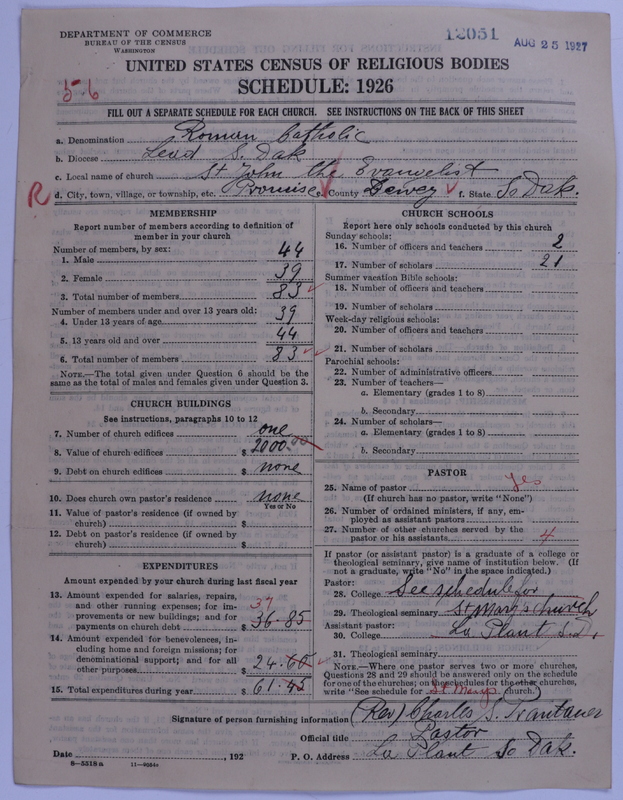 DEPARTMENT OF COMMERCE
BUREAU OF THE CENSUS
WASHINGTON
12051
AUG 25 1927
UNITED STATES CENSUS OF RELIGIOUS BODIES
SCHEDULE: 1926
5-6
FILL OUT A SEPARATE SCHEDULE FOR EACH CHURCH. SEE INSTRUCTIONS ON THE BACK OF THIS SHEET
a. Denomination Roman Catholic
b. Diocese Lead S. Dak
c. Local name of church St John the Evangelist
R
d. City, town, village, or township, etc. Promise e. County Dewey f. State So Dak.
MEMBERSHIP
Report number of members according to definition of
member in your church
Number of members, by sex:
1. Male 44
2. Female 39
3. Total number of members 83
Number of members under and over 13 years old:
4. Under 13 years of age 39
5. 13 years old and over 44
6. Total number of members 83
NOTE.—The total given under Question 6 should be the
same as the total of males and females given under Question 3.
CHURCH BUILDINGS
See instructions, paragraphs 10 to 12
7. Number of church edifices one
8. Value of church edifices $ 2000.00
9. Debt on church edifices $ none
10. Does church own pastor's residence none
Yes or No
11. Value of pastor's residence (if owned by
church) $
12. Debt on pastor's residence (if owned by
church) $
EXPENDITURES
Amount expended by your church during last fiscal year
13. Amount expended for salaries, repairs,
and other running expenses; for im-
provements or new buildings; and for
payments on church debt $ 36.85
37
14. Amount expended for benevolences, in-
cluding home and foreign missions; for
denominational support; and for all
other purposes $ 24.60
15. Total expenditures during year $ 61.45
CHURCH SCHOOLS
Report here only schools conducted by this church
Sunday schools:
16. Number of officers and teachers 2
17. Number of scholars 21
Summer vacation Bible schools:
18. Number of officers and teachers
19. Number of scholars
Week-day religious schools:
20. Number of officers and teachers
21. Number of scholars
Parochial schools:
22. Number of administrative officers
23. Number of teachers—
a. Elementary (grades 1 to 8)
b. Secondary
24. Number of scholars—
a. Elementary (grades 1 to 8)
b. Secondary
PASTOR
25. Name of pastor yes
(If church has no pastor, write "None")
26. Number of ordained ministers, if any, em-
ployed as assistant pastors
27. Number of other churches served by the
pastor or his assistants 4
If pastor (or assistant pastor) is a graduate of a college or
theological seminary, give name of institution below. (If
not a graduate, write "No" in the space indicated.)
Pastor:
28. College See schedule for
29. Theological seminary St Mary's church
Assistant pastor:
30. College La Plant S.D.
31. Theological seminary
NOTE.—Where one pastor serves two or more churches,
Questions 28 and 29 should be answered only on the schedule
for one of the churches; on the schedules for the other churches,
write "See schedule for St Marys church."
Signature of person furnishing information (Rev) Charles S. Trautauer
Official title Pastor
Date , 192
P. O. Address La Plant So Dak.
8-5518 a
11-9084